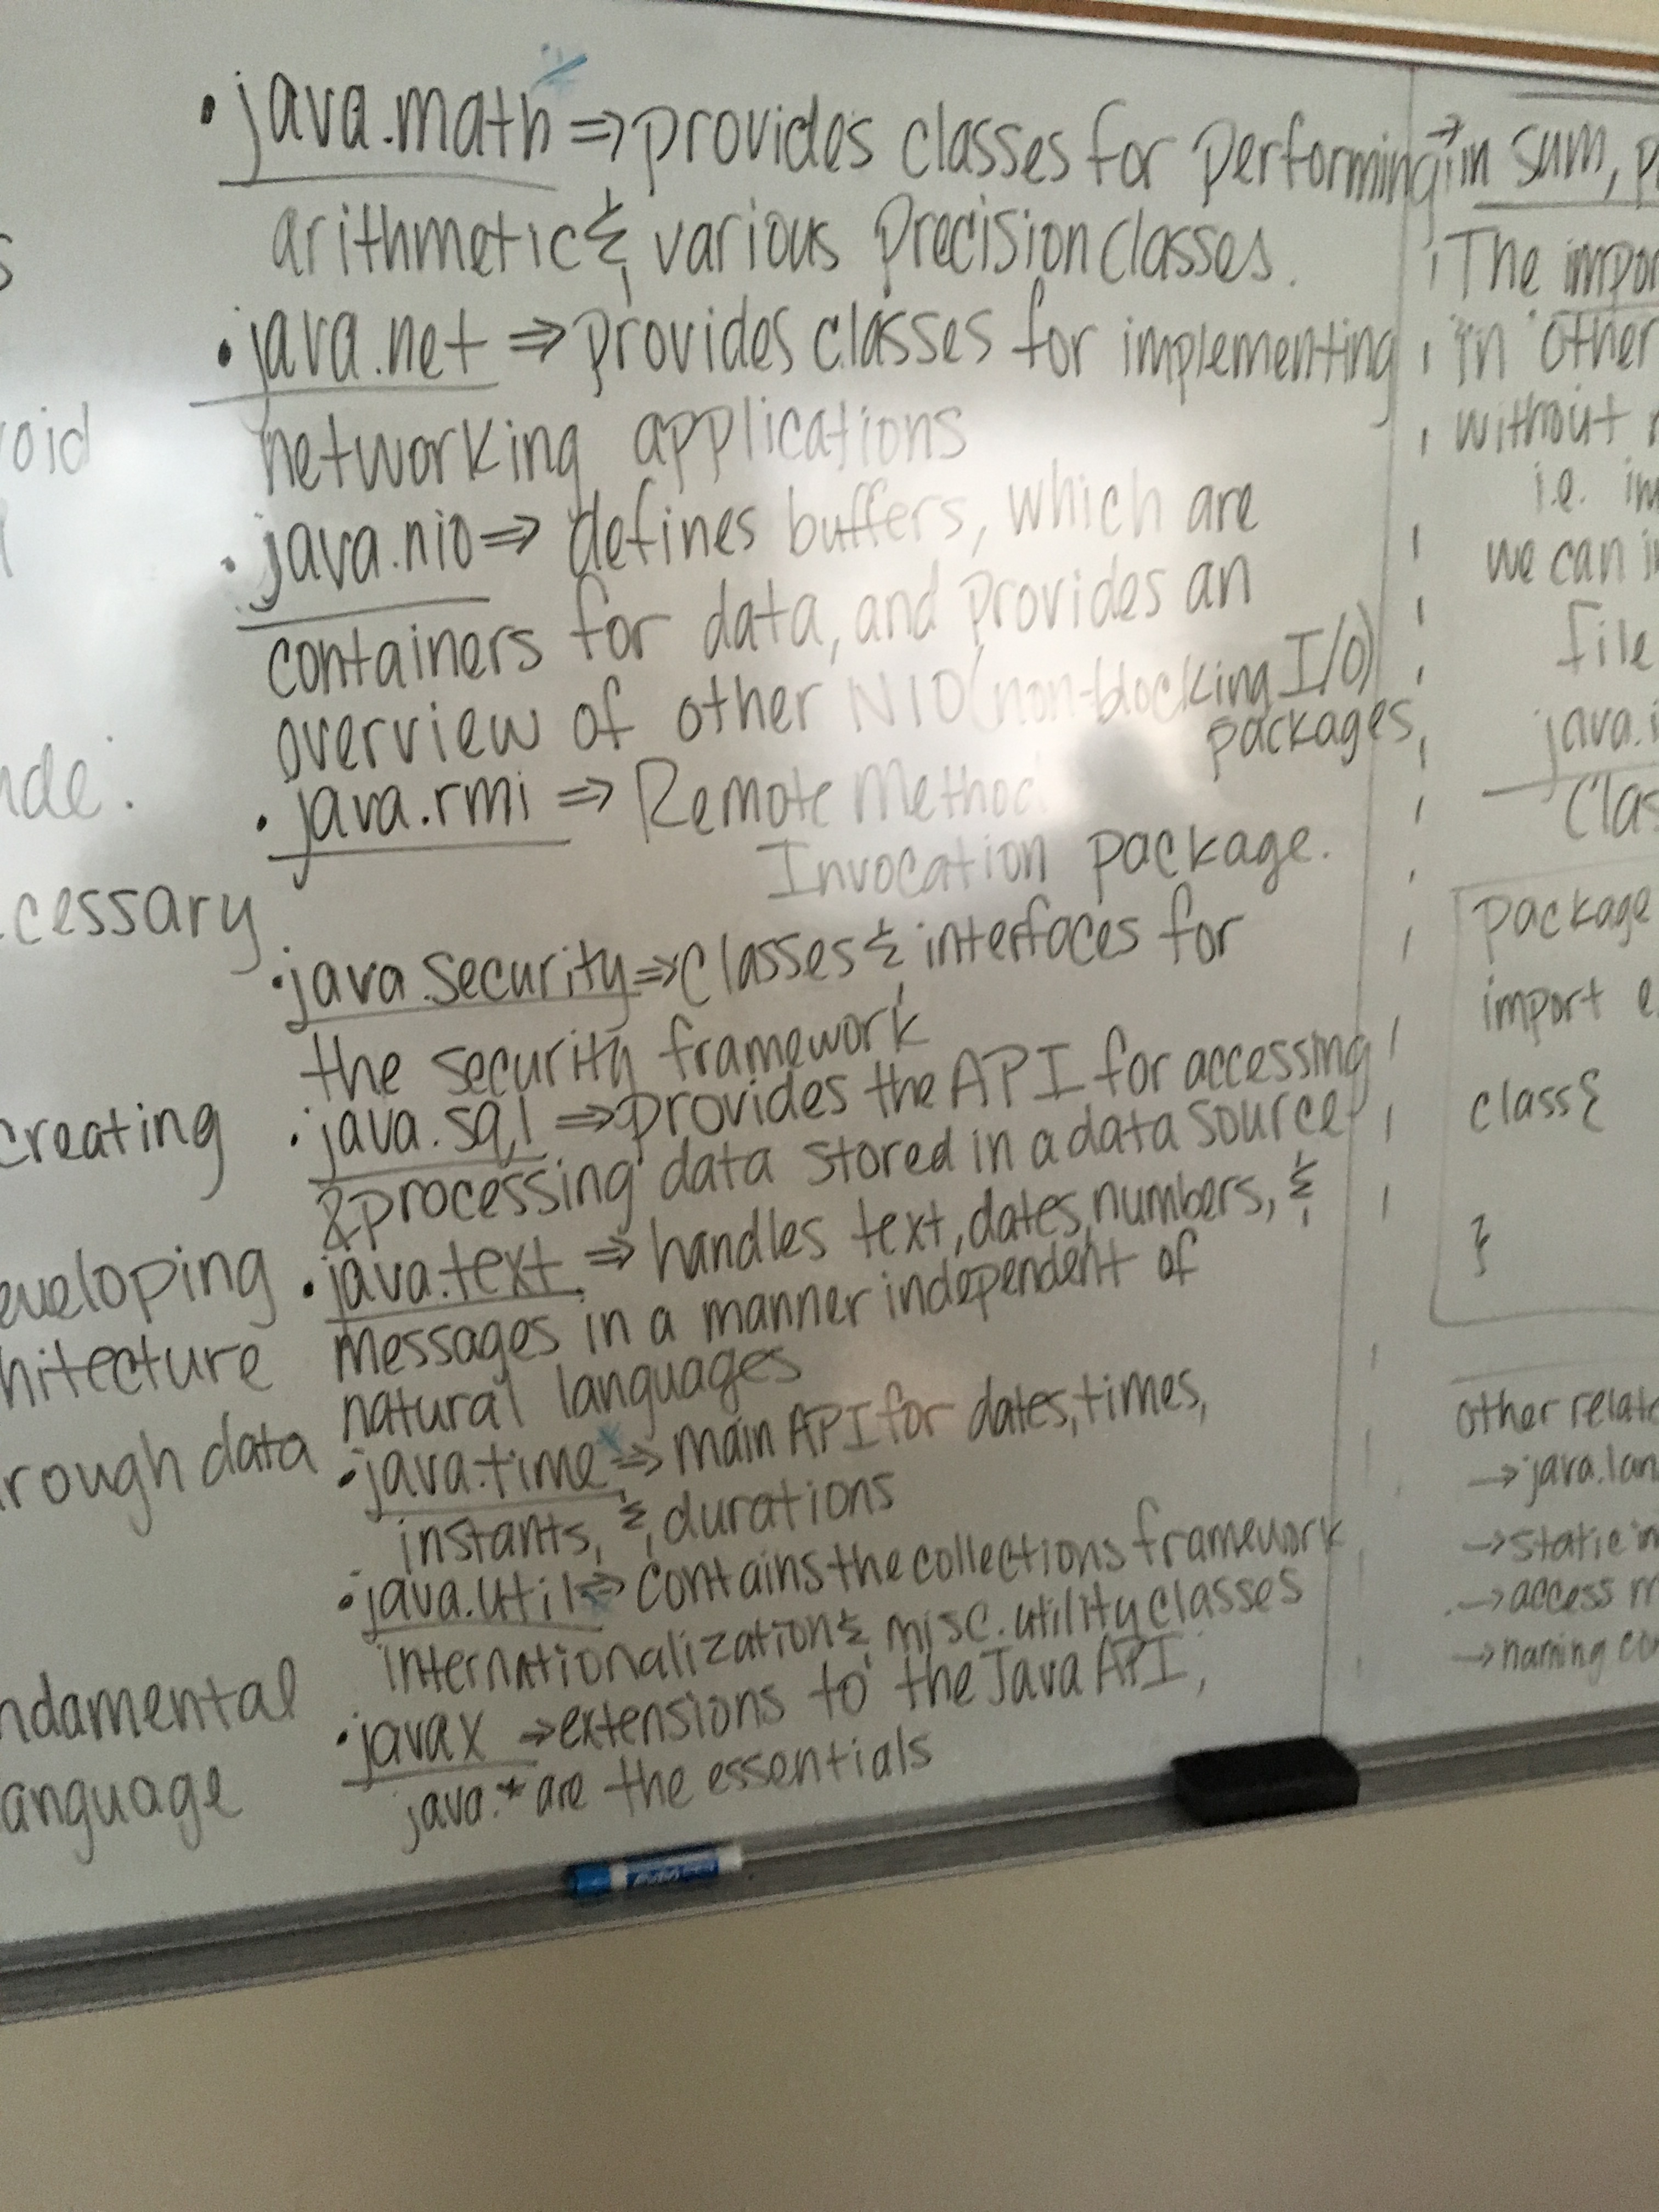 • java.math => provides classes for performing
arithmetic & various precision classes.
• java.net => provides classes for implementing
networking applications
• java.nio => defines buffers, which are
containers for data, and provides an
overview of other NIO (non-blocking I/O)
packages
• java.rmi => Remote Method
Invocation package.
• java.security => classes & interfaces for
the security framework
• java.sql => provides the API for accessing
& processing data stored in a data source
• java.text => handles text, dates, numbers, &
messages in a manner independent of
natural languages
• java.time => main API for dates, times,
instants, & durations
• java.util => contains the collections framework
internationalization & misc. utility classes
• javax => extensions to the Java API,
java.* are the essentials
cessary
creating
through data
language
→ in sum,
The
in other
without
i.e.
we can
file
java.
package
import
class{
}
other
→ java.
→ static
→ access
→ naming